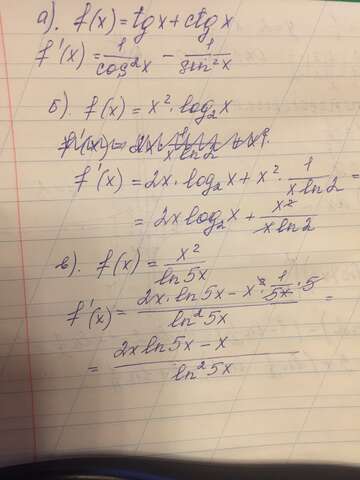 а). f(x) = tg x + ctg x
f'(x) = 1/cos²x − 1/sin²x
б). f(x) = x² · log₂x
f'(x) = 2x · log₂x + x² · 1/(x ln 2) =
= 2x log₂x + x²/(x ln 2)
в). f(x) = x²/ln 5x
f'(x) = (2x · ln 5x − x² · 1/5x · 5)/ln² 5x =
= (2x ln 5x − x)/ln² 5x